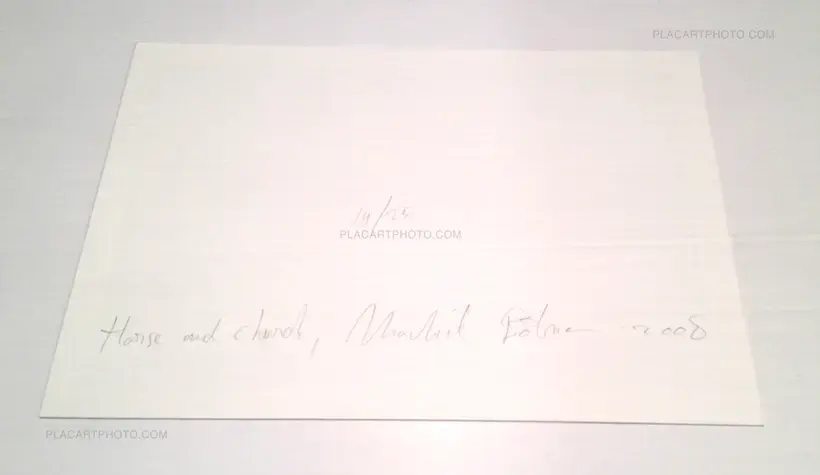 PLACARTPHOTO.COM
14/25
PLACARTPHOTO.COM
Horse and church, Machiel Botman 2008
PLACARTPHOTO.COM